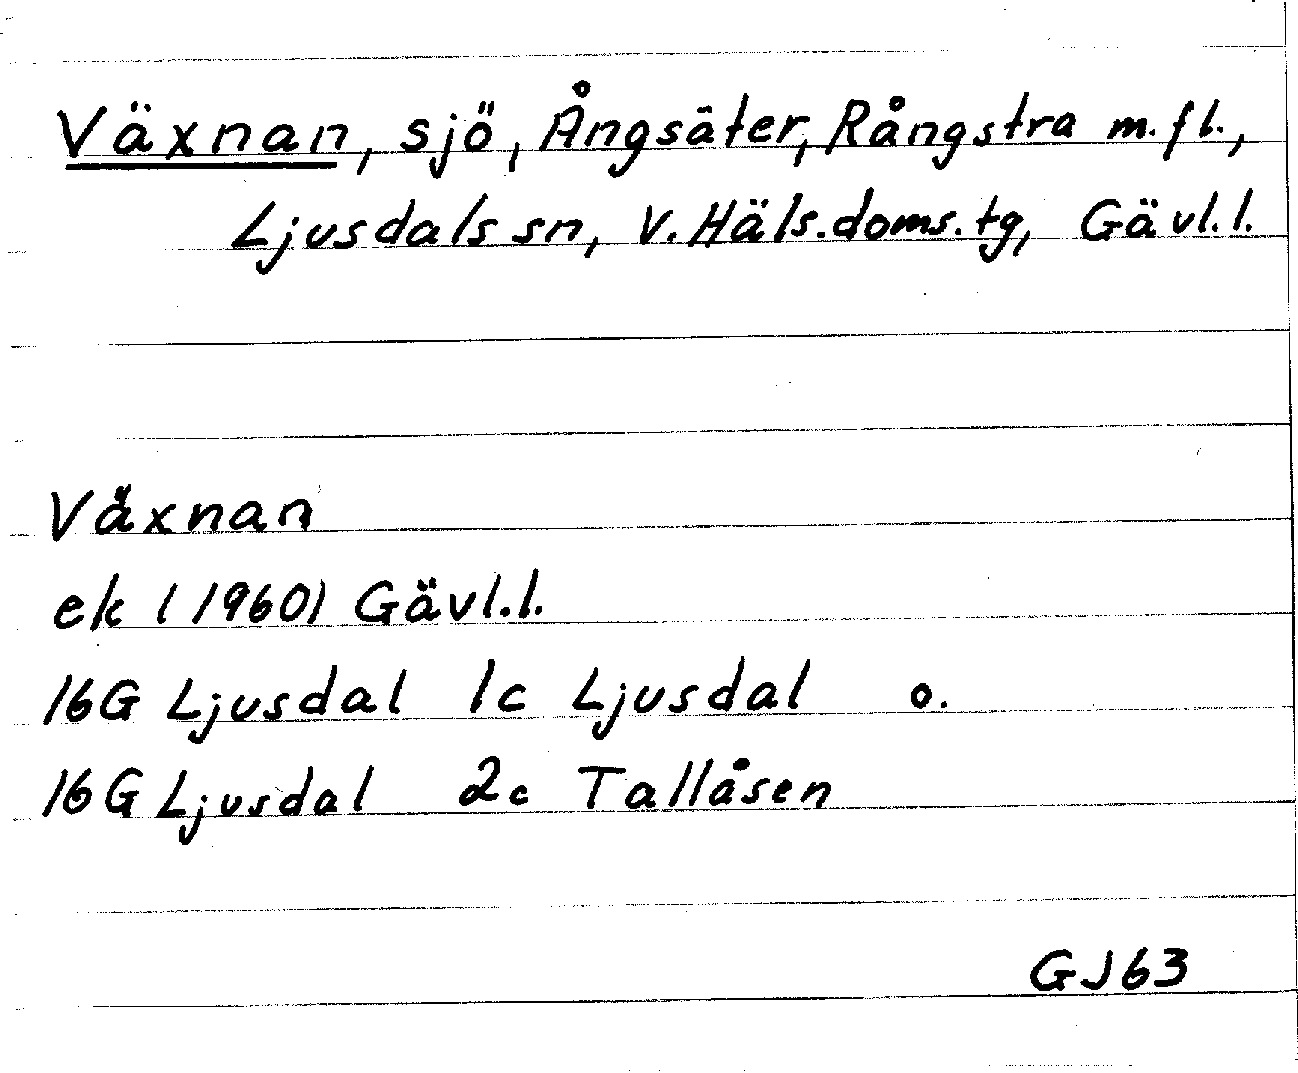 Växnan, sjö, Ångsäter, Rångstra m.fl.,
Ljusdals sn, V. Häls.doms.tg, Gävl.l.
Växnan
ek (1960) Gävl.l.
16G Ljusdal 1c Ljusdal o.
16G Ljusdal 2c Tallåsen
GJ63